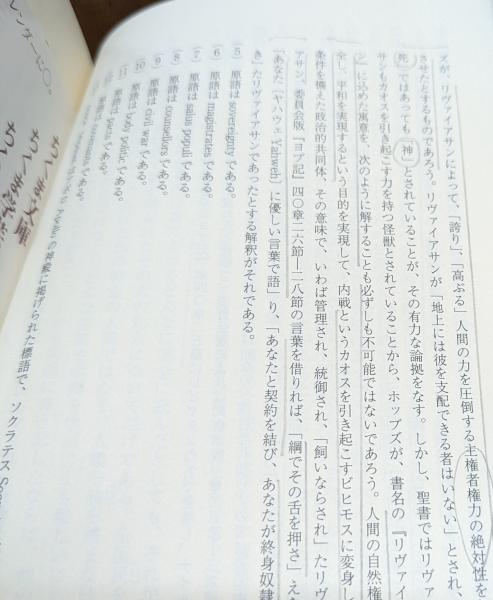 ズが、リヴァイアサンによって、「誇り」、「高ぶる」人間の力を圧倒する主権者権力の絶対性を
させたとするものであろう。リヴァイアサンが「地上には彼を支配できる者はいない」とされ、
死」ではあっても「神」とされていることが、その有力な論拠をなす。しかし、聖書ではリヴァ
サンもカオスを引き起こす力を持つ怪獣とされていることから、ホッブズが、書名の『リヴァイ
ン』に込めた寓意を、次のように解することも必ずしも不可能ではないであろう。人間の自然権
全し、平和を実現するという目的を実現して、内戦というカオスを引き起こすビヒモスに変身し
条件を備えた政治的共同体、その意味で、いわば管理され、統御され、「飼いならされ」たリヴ
アサン、委員会版『ヨブ記』四〇章二六節―二八節の言葉を借りれば、「綱でその舌を押さ」え
「あなた〔ヤハウェ Yahweh〕に優しい言葉で語」り、「あなたと契約を結び、あなたが終身奴隷
き」たリヴァイアサンであったとする解釈がそれである。
(5) 原語は sovereignty である。
(6) 原語は magistrates である。
(7) 原語は salus populi である。
(8) 原語は counsellors である。
(9) 原語は civil war である。
(10) 原語は body politic である。
(11) 原語は である。
である。
の神殿に掲げられた標語で、ソクラテス
レンダーに〇。
ちくま文庫
ちくま学芸